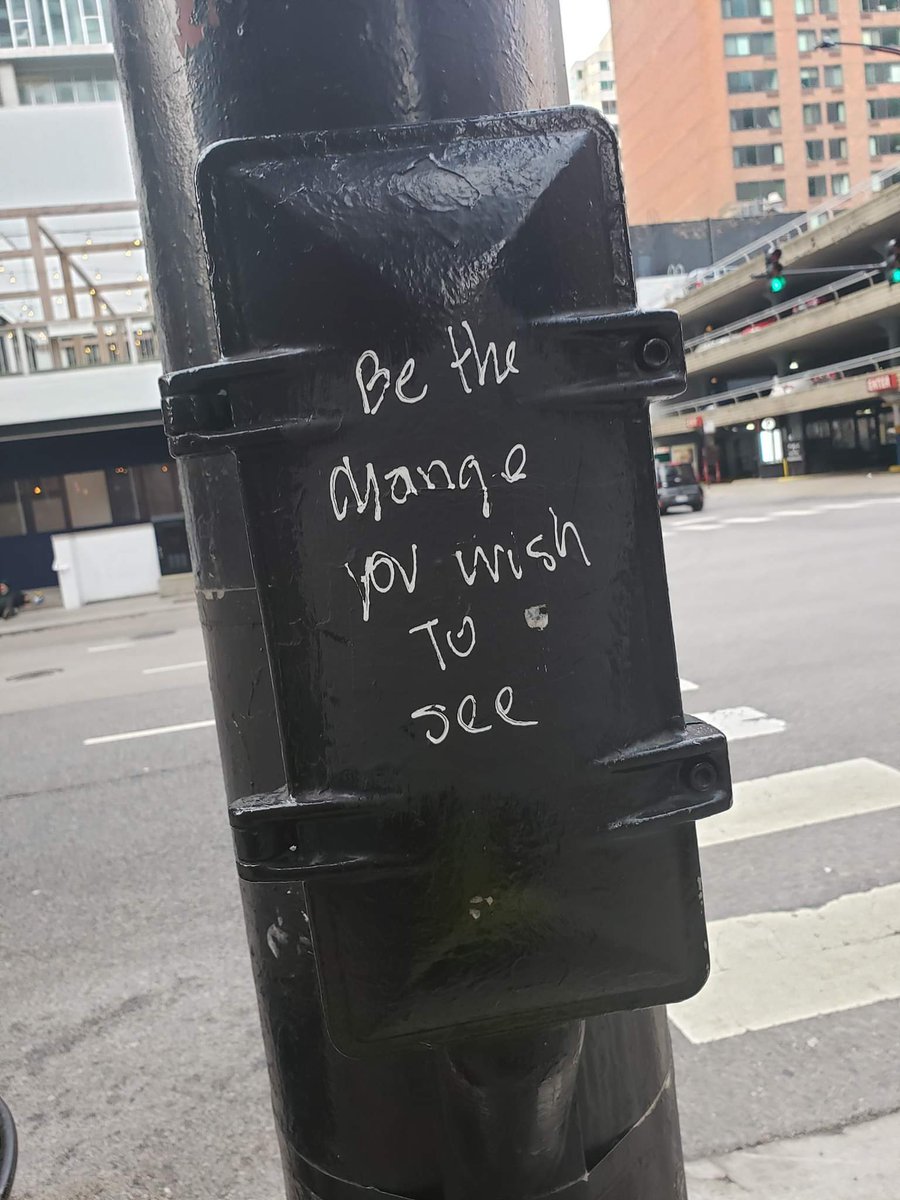 Be the
change
you wish
To
see
ENTER